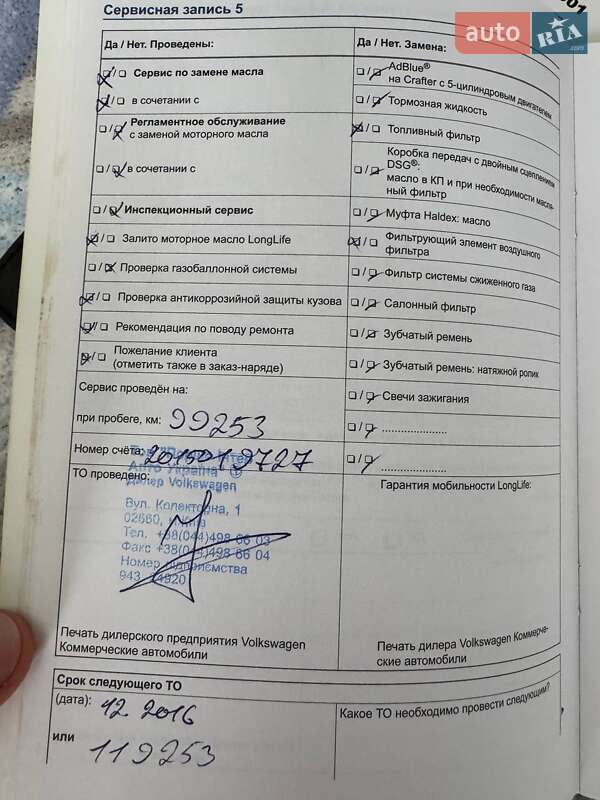 Сервисная запись 5
auto RIA .com
Да / Нет. Проведены:
☒/☐ Сервис по замене масла
☒/☐ в сочетании с
☐/☒ Регламентное обслуживание
с заменой моторного масла
☐/☒ в сочетании с
☐/☒ Инспекционный сервис
☒/☐ Залито моторное масло LongLife
☐/☒ Проверка газобаллонной системы
☒/☐ Проверка антикоррозийной защиты кузова
☒/☐ Рекомендация по поводу ремонта
☒/☐ Пожелание клиента
(отметить также в заказ-наряде)
Сервис проведён на:
при пробеге, км: 99253
Номер счёта: 2015019727
ТО проведено:
Авто Україна
Дилер Volkswagen
Вул. Колекторна, 1
02660, м.Київ
Тел. +38(044)498 66 03
Факс +38(044)498 66 04
Номер підприємства
943
Печать дилерского предприятия Volkswagen
Коммерческие автомобили
Да / Нет. Замена:
☐/☒ AdBlue®
на Crafter с 5-цилиндровым двигателем
☐/☒ Тормозная жидкость
☒/☐ Топливный фильтр
☐/☒ Коробка передач с двойным сцеплением
DSG®:
масло в КП и при необходимости масля-
ный фильтр
☐/☒ Муфта Haldex: масло
☒/☐ Фильтрующий элемент воздушного
фильтра
☐/☒ Фильтр системы сжиженного газа
☐/☒ Салонный фильтр
☐/☒ Зубчатый ремень
☐/☒ Зубчатый ремень: натяжной ролик
☐/☒ Свечи зажигания
☐/☒ .....................
☐/☒ .....................
Гарантия мобильности LongLife:
Печать дилера Volkswagen Коммерче-
ские автомобили
Срок следующего ТО
(дата): 12. 2016
или 119253
Какое ТО необходимо провести следующим?